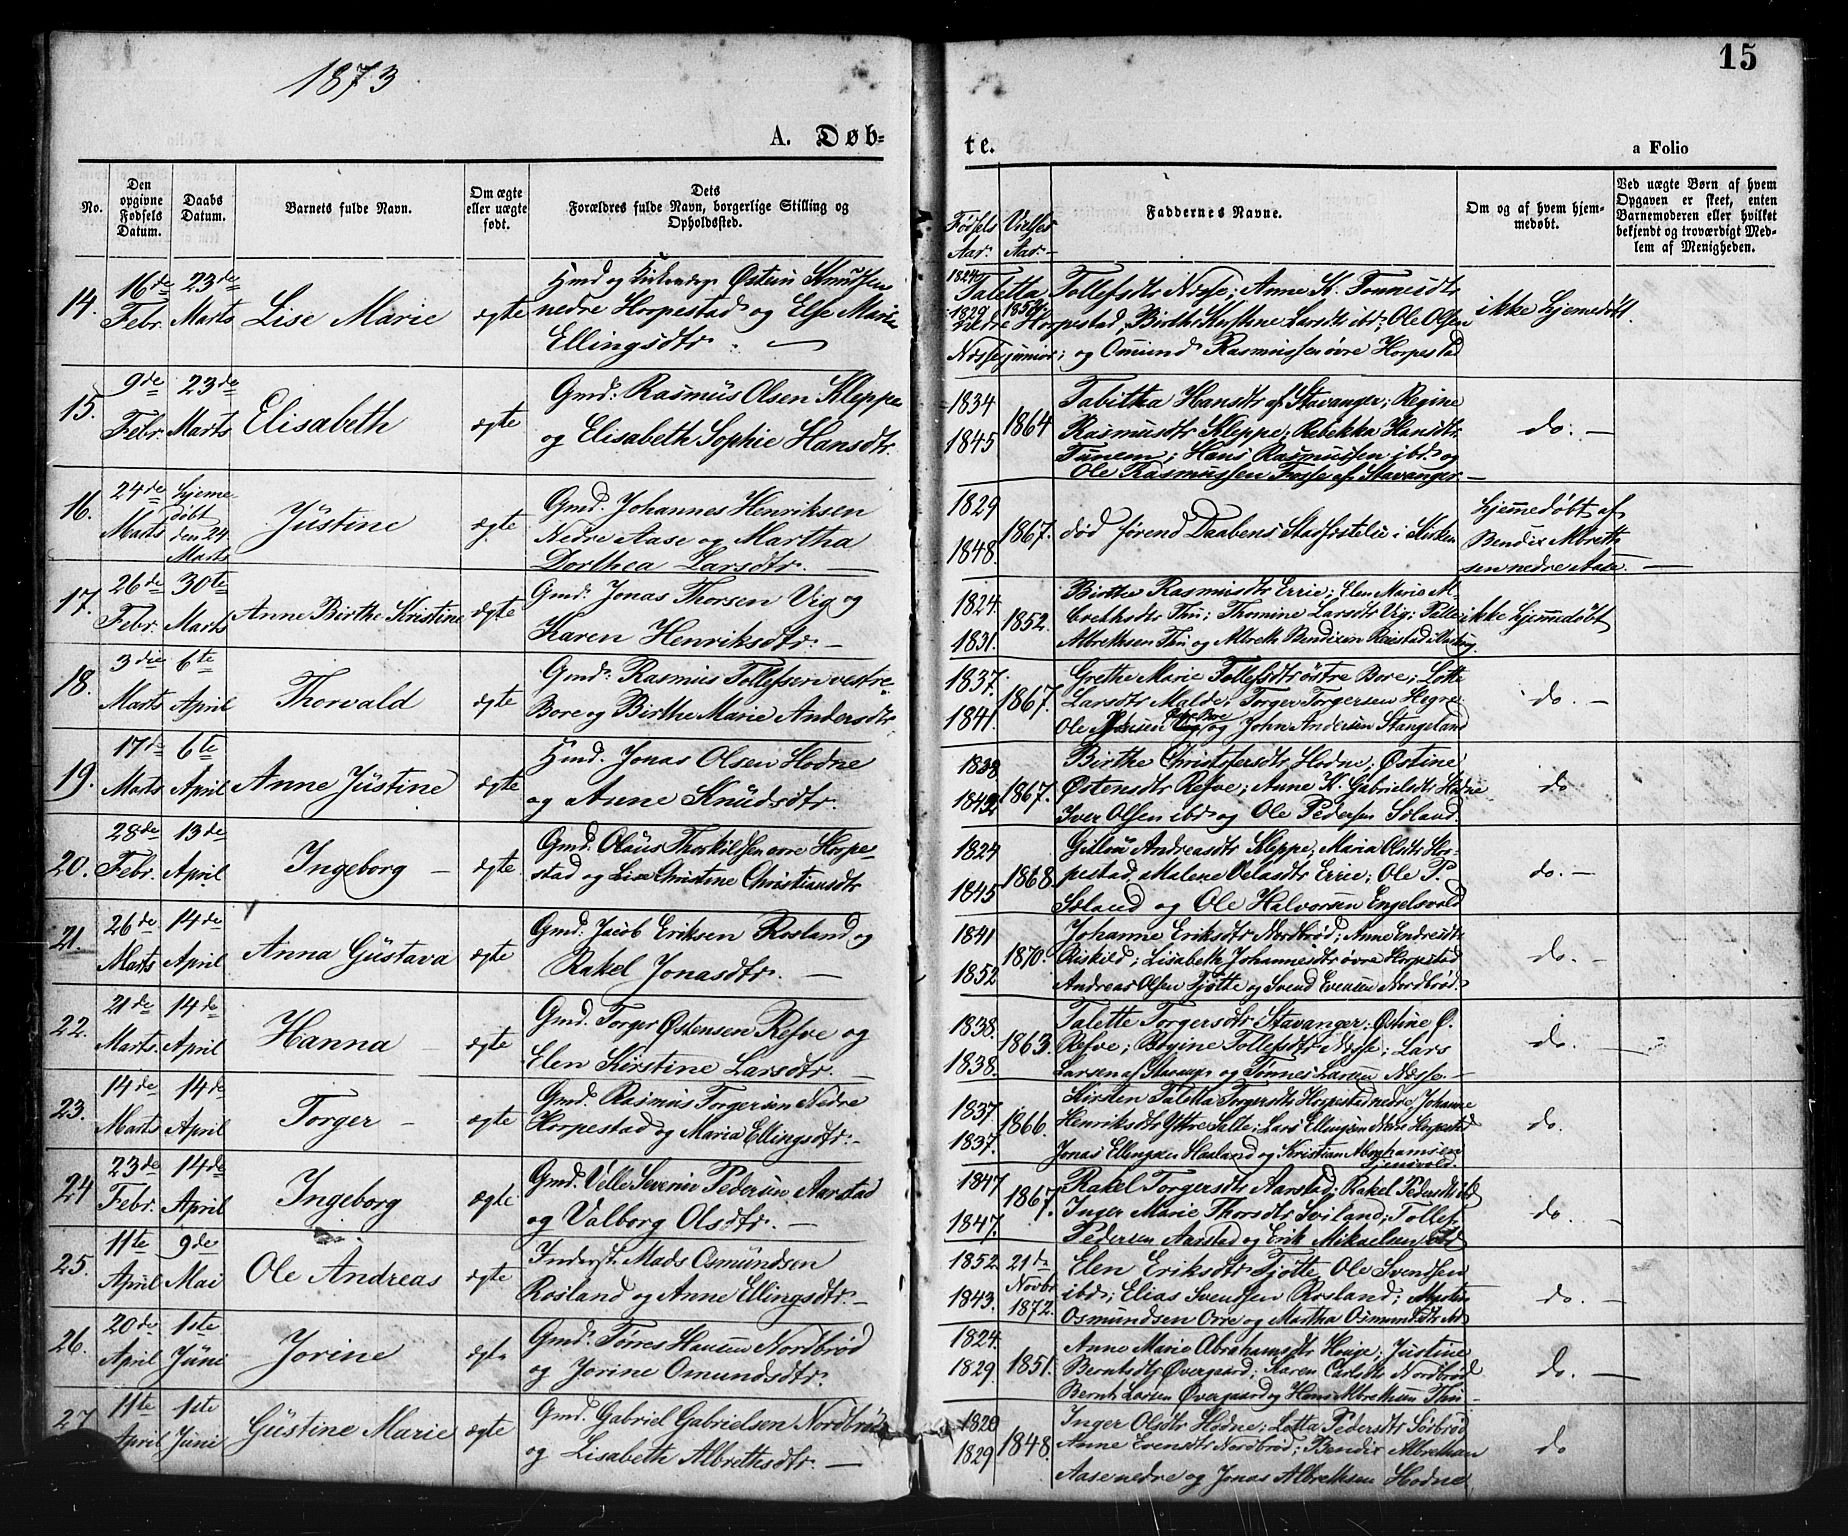 1873
15
A. Døb-
te.
a Folio
No.
Den opgivne Fødsels Datum.
Daabs Datum.
Barnets fulde Navn.
Om ægte eller uægte født.
Dets Forældres fulde Navn, borgerlige Stilling og Opholdssted.
Fødsels Aar.
Vielses Aar.
Faddernes Navne.
Om og af hvem hjemmedøbt.
Ved uægte Børn af hvem Opgaven er skeet, enten Barnemoderen eller hvilket bekjendt og troværdigt Medlem af Menigheden.
14. 16de Febr. 23de Marts Lise Marie ægte
Hmd og Østein Knudsen
nedre Horpestad og Else Marie
Ellingsdtr.
1824 1829 1852
Taletta Tollefsdtr Næsse; Anne K. Tønnesdtr
nedre Horpestad, Birthe Kirstine Larsdtr ibd; Ole Olsen
Næsse junior; og Omund Rasmussen øvre Horpestad
ikke hjemedøbt.
15. 9de Febr. 23de Marts Elisabeth ægte
Gmd. Rasmus Olsen Kleppe
og Elisabeth Sophie Hansdtr.
1834 1845 1864
Tabitha Hansdtr af Stavanger; Regine
Rasmusdtr Kleppe; Rebekka Hansdtr
Tunem; Hans Rasmussen ibd og
Ole Rasmussen Fosse af Stavanger.
do.
16. 24de Marts hjemedøbt den 24 Marts Jüstine ægte
Gmd. Johannes Henriksen
Nedre Aase og Martha
Dorthea Larsdtr.
1829 1848. 1867.
død førend Daabens Stadfæstelse i Kirken
hjemmedøbt af
Bendix Albrethsen
nedre Aase.
17. 26de Febr. 30te Marts Anne Birthe Kristine ægte
Gmd. Jonas Thorsen Vig og
Karen Henriksdtr.
1824. 1831. 1852.
Birthe Rasmusdtr Errie; Elen Marie Albrethsdtr
Thu; Thomine Larsdtr Vig;
Albrethsen Thu og Albreth Bendixen
ikke hjemmedøbt
18. 3die Marts 6te April Thorvald ægte
Gmd. Rasmus Tollefsen vestre
Bore og Birthe Marie Andersdtr
1837. 1841. 1867.
Grethe Marie Tollefsdtr østre Bore; Lotte
Larsdtr Malde; Torger Torgersen Hogre
Ole Hansen og John Andersen Stangeland
do.
19. 17de Marts 6te April Anne Jüstine ægte
Hmd. Jonas Olsen Hodne
og Anne Knudsdtr.
1838 1842 1867.
Birthe Christofersdtr Hodne; Østine
Østensdtr Refve; Anne K. Gabrielsdtr Hodne
Iver Olsen ibd og Ole Pedersen Søland.
do
20. 28de Febr. 13de April Ingeborg ægte
Gmd. Olaus Thorkildsen øvre Horpe-
stad og Lise Christine Christiansdtr
1824 1845 1868.
Gilline Andreasdtr Kleppe; Maria Olsdtr Hor-
pestad, Malene Velasdtr Errie; Ole P.
Søland og Ole Halvorsen Engelsvold
do.
21. 26de Marts 14de April Anna Güstava ægte
Gmd. Jacob Eriksen Rosland og
Rakel Jonasdtr.
1841 1852 1870.
Johanne Eriksdtr Nordbrød; Anne Endresdtr
Riskild; Lisabeth Johannesdtr øvre Horpestad
Andreas Olsen Tjøtte og Svend Evensen Nordbrød.
do.
22. 21de Marts. 14de April Hanna ægte
Gmd. Torger Østensen Refve og
Elen Kirstine Larsdtr.
1838. 1838. 1863.
Talette Torgersdtr Stavanger; Østine Ø.
Refve; Regine Tollefsdtr Næsse; Lars
Larsen af Stavanger og Tønnes Larsen Næsse.
do.
23. 14de Marts 14de April Torger ægte
Gmd. Rasmus Torgersen Nedre
Horpestad og Maria Ellingsdtr.
1837 1837. 1866.
Kirsten Taletta Torgersdtr Horpestad nedre, Johanne
Henriksdtr Yttre Salte; Lars Ellingsen Nedre Horpestad
Jonas Ellingsen Heuland og Kristian Abrahamsen
do.
24 23de Febr. 14de April Ingeborg ægte
Gmd. Velle Severin Pedersen Aarstad
og Valborg Olsdtr.
1847 1847. 1867.
Rakel Torgersdtr Aarstad; Rakel Pedersdtr ibd
Inger Marie Thorsdtr Sviland; Tollef
Pedersen Aarstad og Erik Mikaelsen ibd
do.
25. 11te April 9de Mai Ole Andreas ægte
Inderst. Mads Osmündsen
Rosland og Anne Ellingsdtr.
1852 1843. 21de Novbr 1872.
Elen Eriksdtr Tjøtte, Ole Svendsen
ibd; Elias Svendsen Rosland;
Osmundsen Orre og Martha Osmundsdtr
do.
26. 20de April 1ste Jüni Jorine ægte
Gmd. Tørres Hansen Nordbrød
og Jorine Omundsdtr.
1824. 1829 1851.
Anne Marie Abrahamsdtr Hauge; Justine
Berntsdtr Øvergaard; Karen Carlsdtr Nordbrød
Bernt Larsen Øvergaard og Hans Albrethsen Thu
do.
27 11te April 1ste Juni Güstine Marie ægte
Gmd. Gabriel Gabrielsen Nordbrød
og Lisabeth Albrethsdtr.
1820 1829 1848.
Inger Olsdtr Hodne; Lotta Pedersdtr Sørbrød
Anne Evensdtr Nordbrød; Bendix Albrethsen
Aase nedre og Jonas Albrethsen Hodne.
do